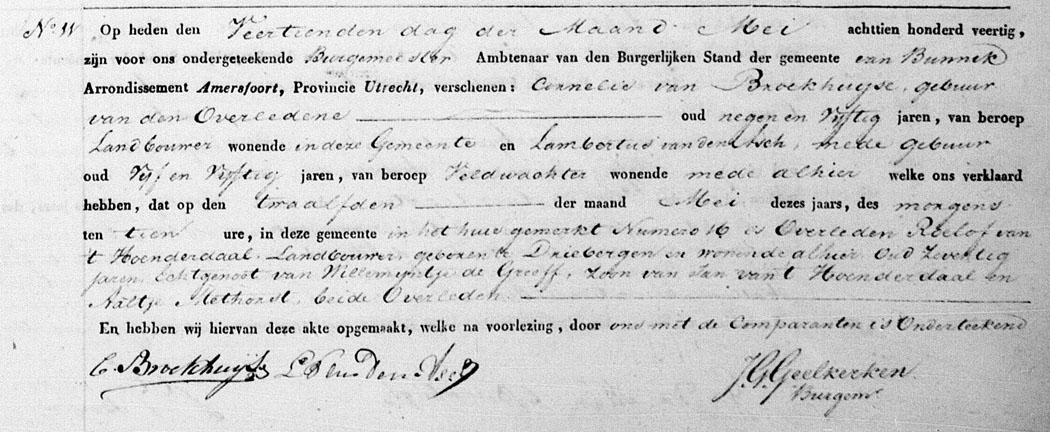 No 11 Op heden den Veertienden dag der Maand Mei achttien honderd veertig,
zijn voor ons ondergeteekende Burgemeester Ambtenaar van den Burgerlijken Stand der gemeente van Bunnik
Arrondissement Amersfoort, Provincie Utrecht, verschenen: Cornelis van Broekhuijse, gebuur
van den Overledene oud negen en Vyftig jaren, van beroep
Landbouwer wonende in deze Gemeente en Lambertus van den Asch, mede gebuur
oud Vyf en Vyftig jaren, van beroep Veldwachter wonende mede alhier welke ons verklaard
hebben, dat op den twaalfden der maand Mei dezes jaars, des morgens
ten tien ure, in deze gemeente in het huis gemerkt Numero 16 is Overleden Roelof van
't Hoenderdaal, Landbouwer, geboren te Driebergen en wonende alhier, Oud Zeventig
jaren, Echtgenoot van Willemyntje de Greeff, Zoon van Jan van 't Hoenderdaal en
Aaltje Methorst, beide Overleden.
En hebben wij hiervan deze akte opgemaakt, welke na voorlezing, door ons met de Comparanten is Onderteekend
C. Broekhuijse L Van Den Asch J.G. Geelkerken
Burgemr